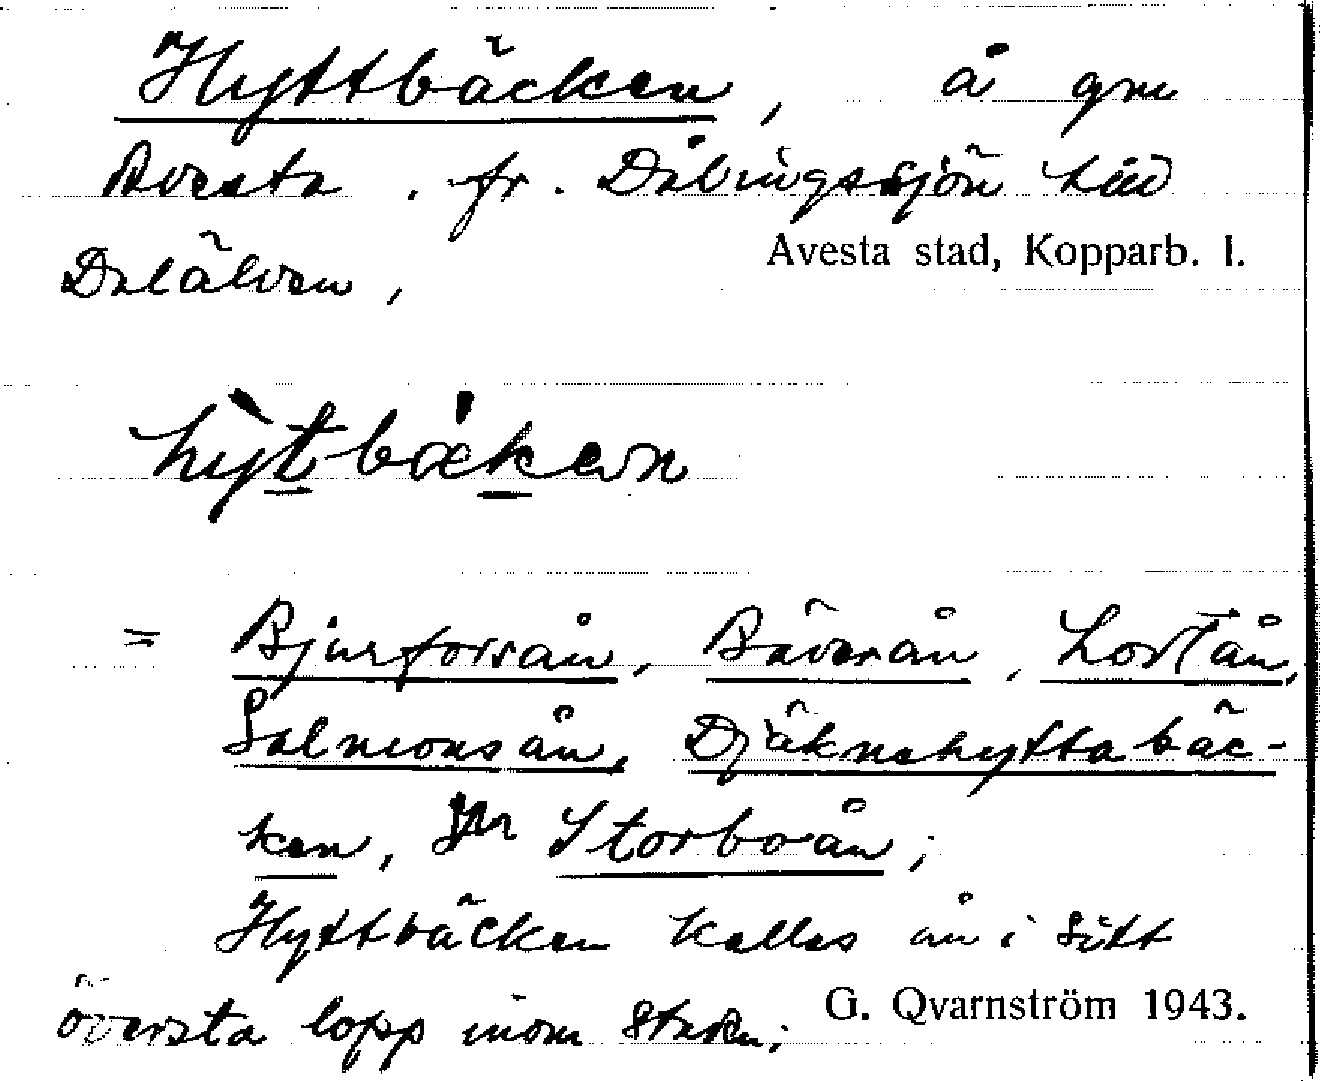 Hyttbäcken, å gm
Avesta. fr. Dalvingssjön till
Avesta stad, Kopparb. l.
Dalälven,
hỳt bækan
= Bjurforsån, Bäverån, Lortån,
Salmonsån, Djäknehyttabäc-
ken, Storboån;
Hyttbäcken kallas ån i sitt
översta lopp inom staden;
G. Qvarnström 1943.